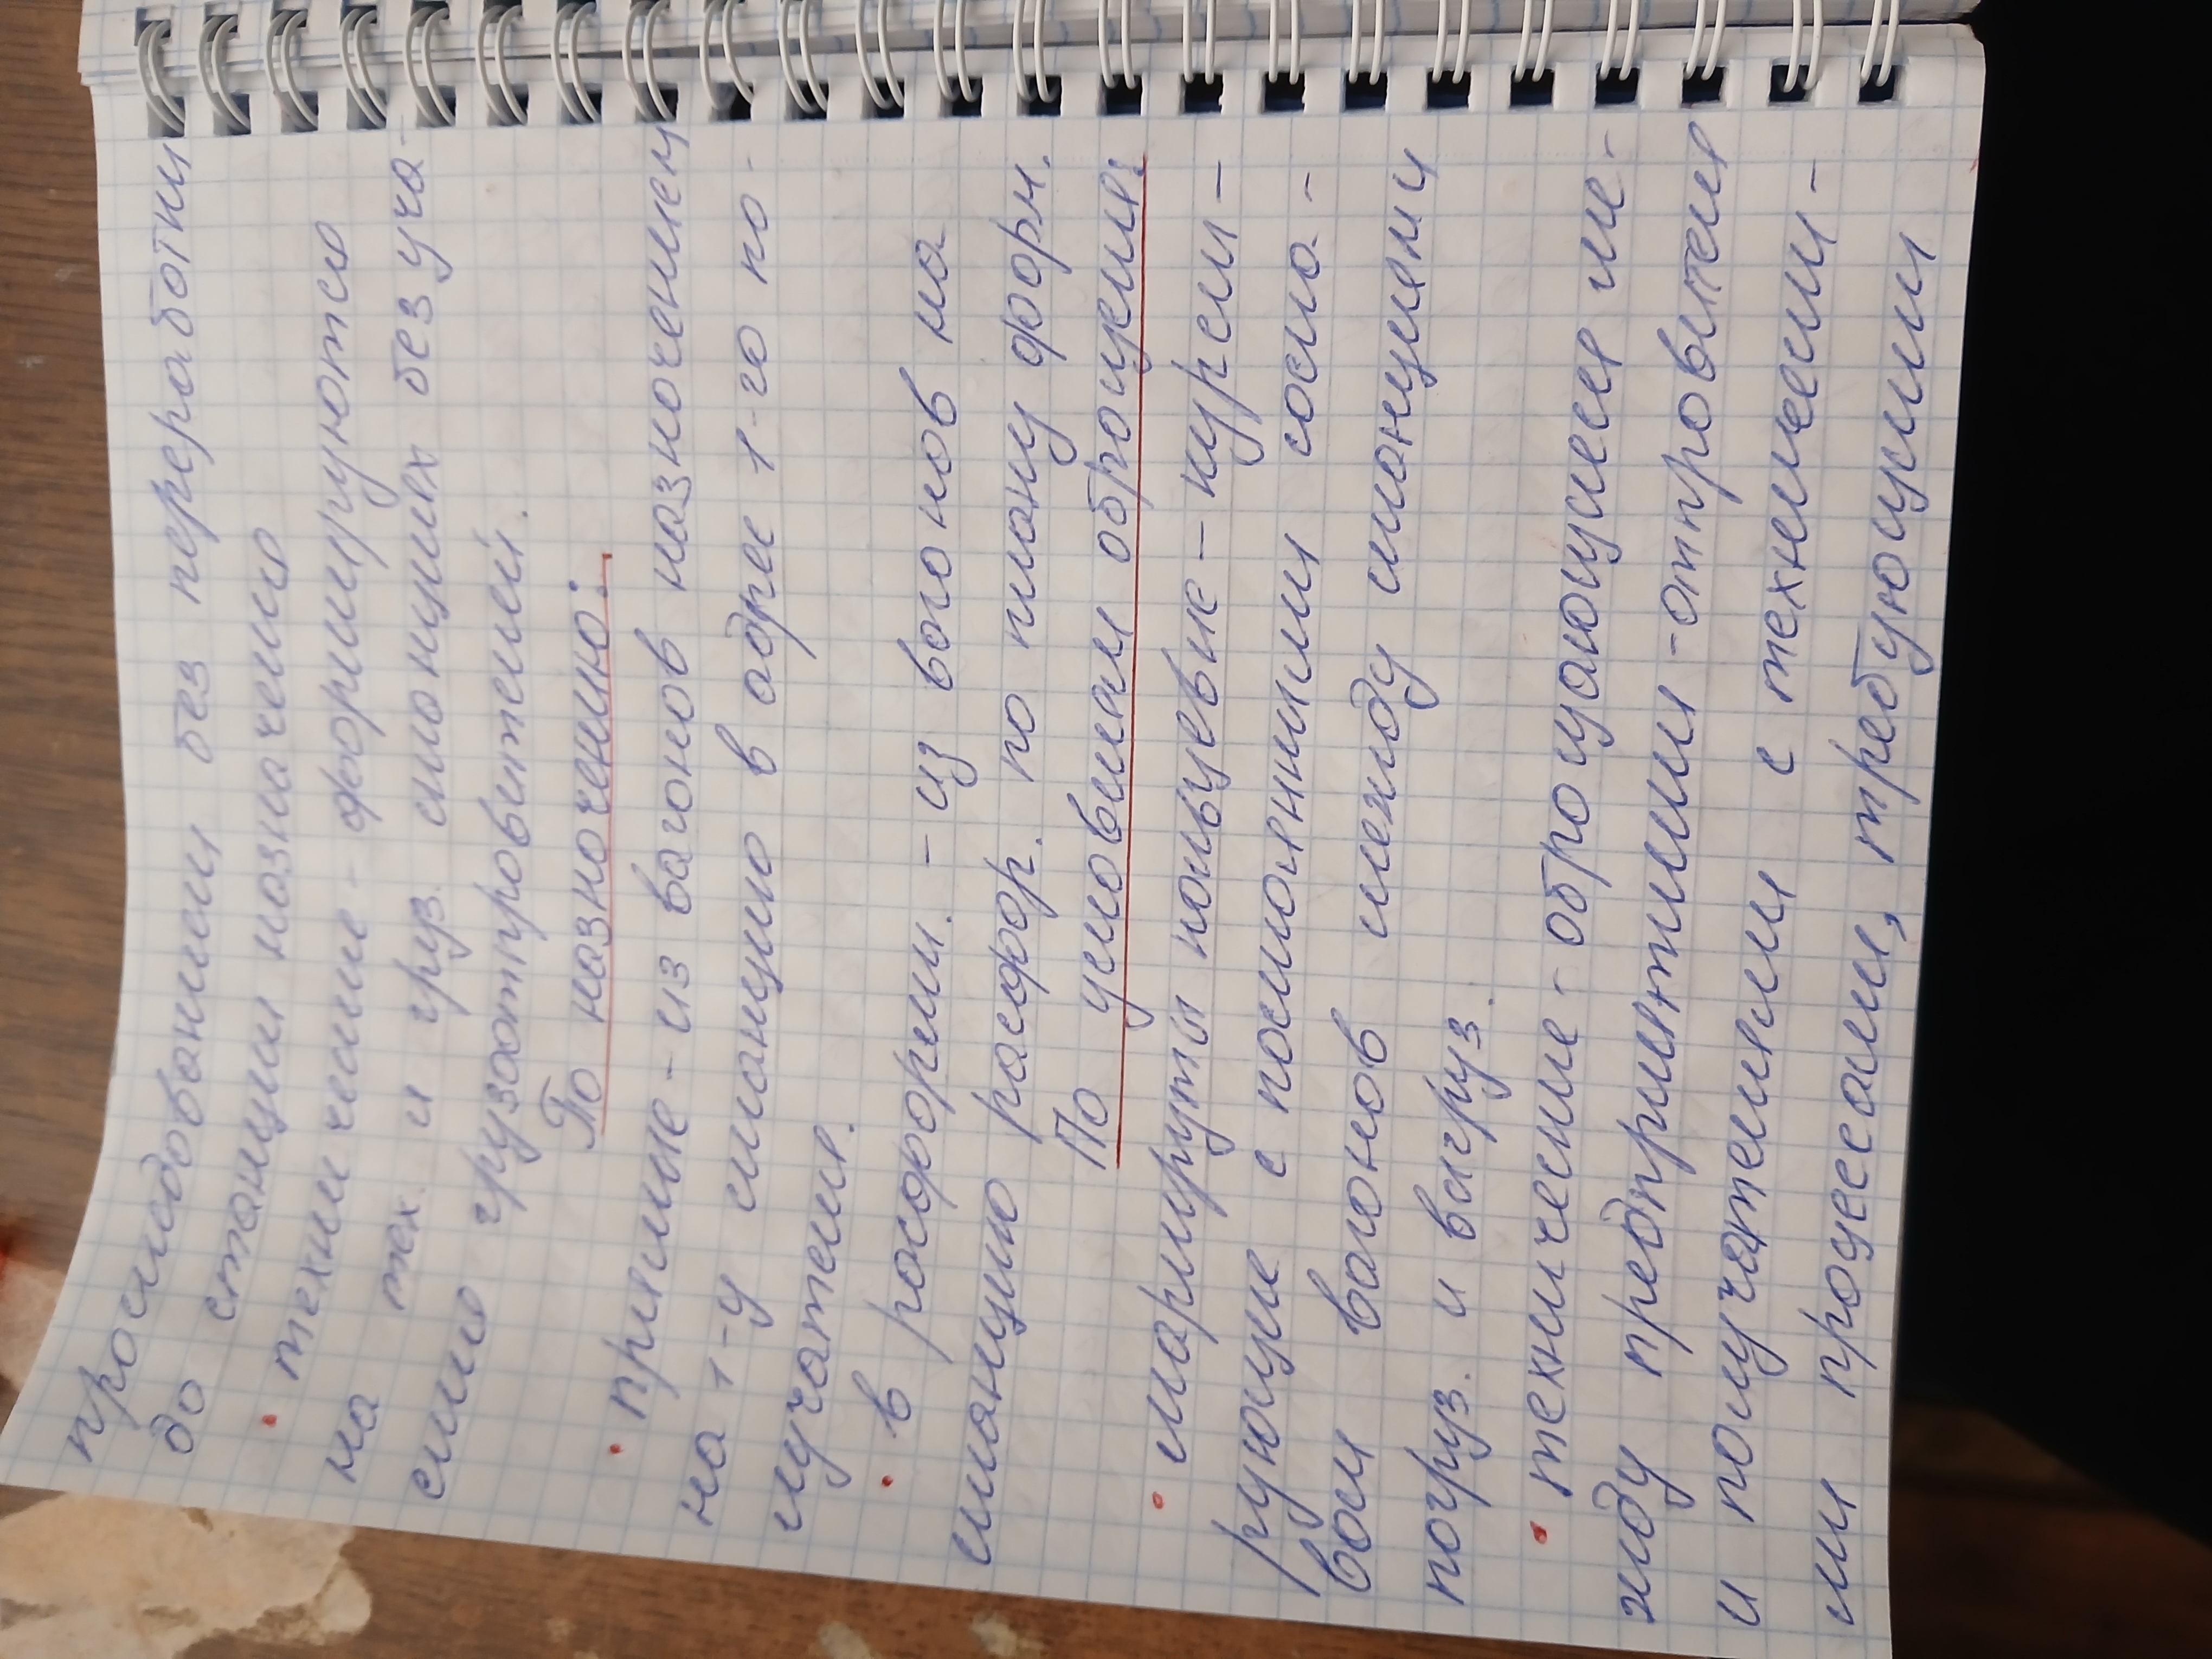 проследовании без переработки
до станции назначения
• технические - формируются
на тех. и груз. станциях без уча-
стия грузоотправителей.
По назначению:
• прямые - из вагонов назначением
на 1-у станцию в адрес 1-го по-
лучателя.
• в расформ. - из вагонов на
станцию расфор. по плану форм.
По условиям обращения:
• маршруты кольцевые - курси-
рующие с постоянными соста-
вом вагонов между станциями
погруз. и выгруз.
• технические - обращающиеся ме-
жду предприятиями - отправителя
и получателями с технически-
ми процессами, требующими